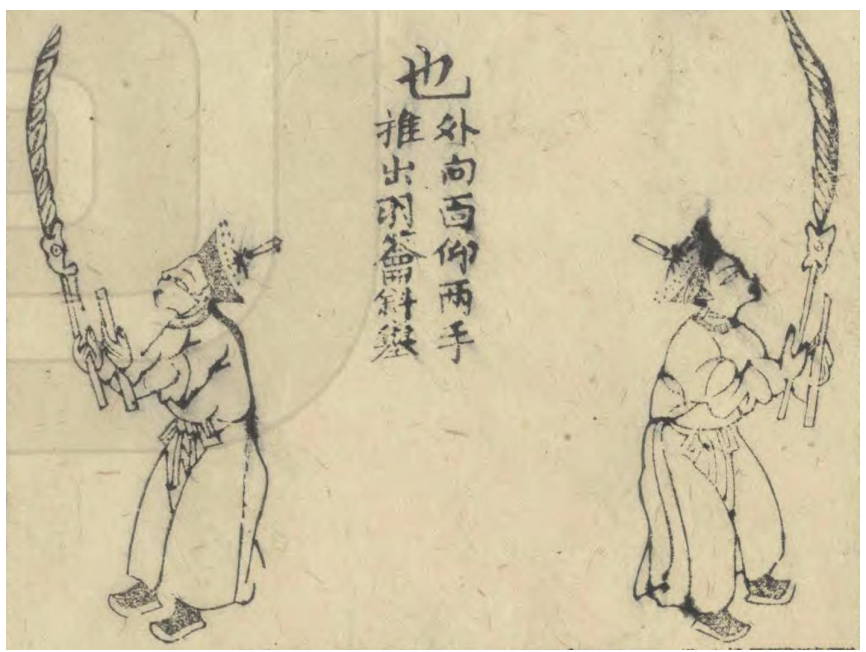 也
外向面仰两手
推出羽籥斜舉